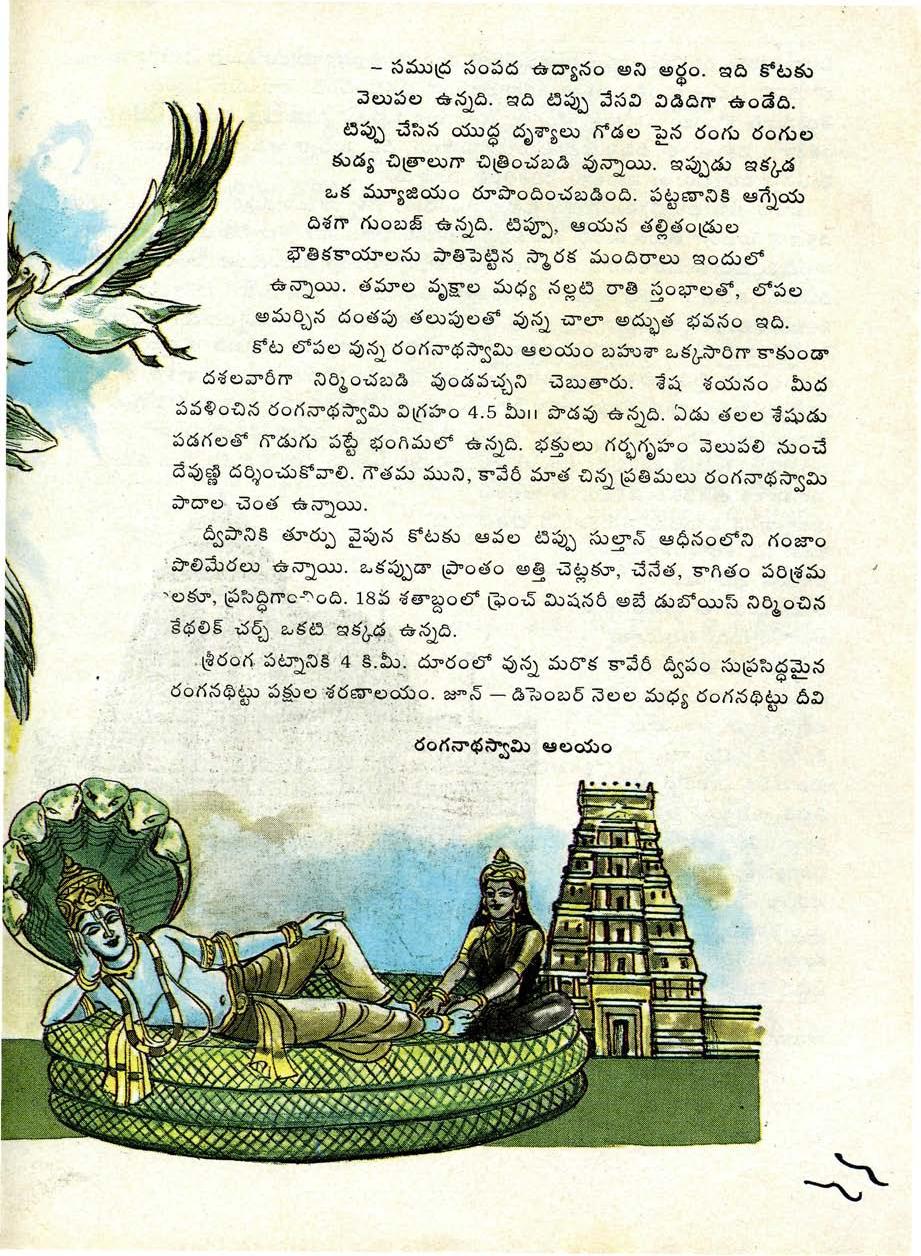 – సముద్ర సంపద ఉద్యానం అని అర్థం. ఇది కోటకు
వెలుపల ఉన్నది. ఇది టిప్పు వేసవి విడిదిగా ఉండేది.
టిప్పు చేసిన యుద్ధ దృశ్యాలు గోడల పైన రంగు రంగుల
కుడ్య చిత్రాలుగా చిత్రించబడి వున్నాయి. ఇప్పుడు ఇక్కడ
ఒక మ్యూజియం రూపొందించబడింది. పట్టణానికి ఆగ్నేయ
దిశగా గుంబజ్ ఉన్నది. టిప్పూ, ఆయన తల్లితండ్రుల
భౌతికకాయాలను పాతిపెట్టిన స్మారక మందిరాలు ఇందులో
ఉన్నాయి. తమాల వృక్షాల మధ్య నల్లటి రాతి స్తంభాలతో, లోపల
అమర్చిన దంతపు తలుపులతో వున్న చాలా అద్భుత భవనం ఇది.
కోట లోపల వున్న రంగనాథస్వామి ఆలయం బహుశా ఒక్కసారిగా కాకుండా
దశలవారీగా నిర్మించబడి వుండవచ్చని చెబుతారు. శేష శయనం మీద
పవళించిన రంగనాథస్వామి విగ్రహం 4.5 మీ॥ పొడవు ఉన్నది. ఏడు తలల శేషుడు
పడగలతో గొడుగు పట్టే భంగిమలో ఉన్నది. భక్తులు గర్భగృహం వెలుపలి నుంచే
దేవుణ్ణి దర్శించుకోవాలి. గౌతమ ముని, కావేరీ మాత చిన్న ప్రతిమలు రంగనాథస్వామి
పాదాల చెంత ఉన్నాయి.
ద్వీపానికి తూర్పు వైపున కోటకు ఆవల టిప్పు సుల్తాన్ ఆధీనంలోని గంజాం
పొలిమేరలు ఉన్నాయి. ఒకప్పుడా ప్రాంతం అత్తి చెట్లకూ, చేనేత, కాగితం పరిశ్రమ
లకూ, 18వ శతాబ్దంలో ఫ్రెంచ్ మిషనరీ అబే డుబోయిస్ నిర్మించిన
కేథలిక్ చర్చ్ ఒకటి ఇక్కడ ఉన్నది.
శ్రీరంగ పట్నానికి 4 కి.మీ. దూరంలో వున్న మరొక కావేరీ ద్వీపం సుప్రసిద్ధమైన
రంగనథిట్టు పక్షుల శరణాలయం. జూన్ – డిసెంబర్ నెలల మధ్య రంగనథిట్టు దీవి
రంగనాథస్వామి ఆలయం